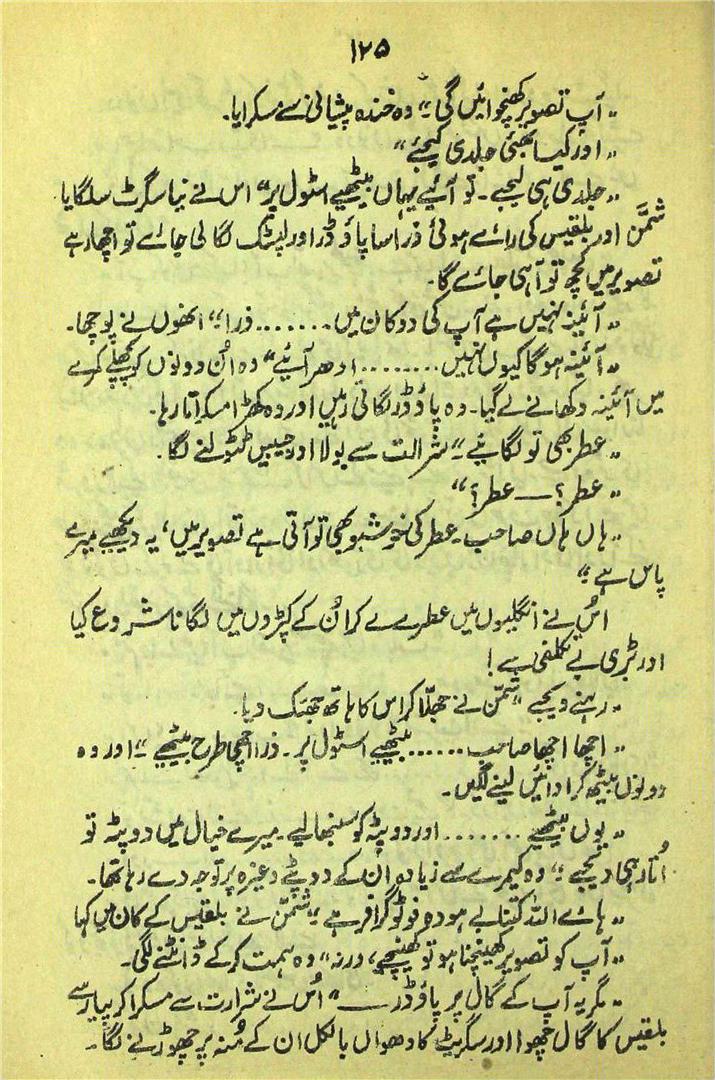 ۱۲۵
”آپ تصویر کھنچوائیں گی؟“ وہ خندہ پیشانی سے مسکرایا۔
”اور کیا بھئی جلدی کیجئے“
”جلدی ہی لیجے۔ تو آئیے یہاں بیٹھیے اسٹول پر“ اس نے نیا سگرٹ سلگایا
شمّن اور بلقیس کی رائے ہوئی ذرا سا پاؤڈر اور لپسٹک لگا لی جائے تو اچھا رہے
تصویر میں کچھ تو آ ہی جائے گا۔
”آئینہ نہیں ہے آپ کی دوکان میں۔...... ذرا“ انھوں نے پوچھا۔
”آئینہ ہو گا کیوں نہیں........ ادھر آئیے“ وہ اُن دونوں کو پچھلے کمرے
میں آئینہ دکھانے لے گیا۔ وہ پاؤڈر لگاتی رہیں اور وہ کھڑا مسکراتا رہا۔
”عطر بھی تو لگائیے“ شرارت سے بولا اور جیبیں ٹٹولنے لگا۔
”عطر؟ — عطر؟“
”ہاں ہاں صاحب۔ عطر کی خوشبو بھی تو آتی ہے تصویر میں، یہ دیکھیے میرے
پاس ہے“
اُس نے انگلیوں میں عطر لے لے کر اُن کے کپڑوں میں لگانا شروع کیا
اور بڑی بے تکلفی سے!
”رہنے دیجے“ شمّن نے جھلّا کر اس کا ہاتھ جھٹک دیا۔
”اچھا اچھا صاحب...... بیٹھیے اسٹول پر۔ ذرا اچھی طرح بیٹھیے“ اور وہ
دونوں بیٹھ کر ادائیں لینے لگیں۔
”یوں بیٹھیے....... اور دوپٹہ کو سنبھالیے۔ میرے خیال میں دوپٹہ تو
اُتار ہی دیجیے“ وہ کیمرے سے زیادہ ان کے دوپٹے وغیرہ پر توجہ دے رہا تھا۔
”ہائے اللہ کتنا بے ہودہ فوٹو گرافر ہے“ شمّن نے بلقیس کے کان میں کہا
”آپ کو تصویر کھینچنا ہو تو کھینچیے، ورنہ“ وہ ہمت کر کے ڈانٹنے لگی۔
”مگر یہ آپ کے گال پر پاؤڈر —“ اُس نے شرارت سے مسکرا کر پیار سے
بلقیس کا گال چھوا اور سگریٹ کا دھواں بالکل ان کے مُنہ پر چھوڑنے لگا۔